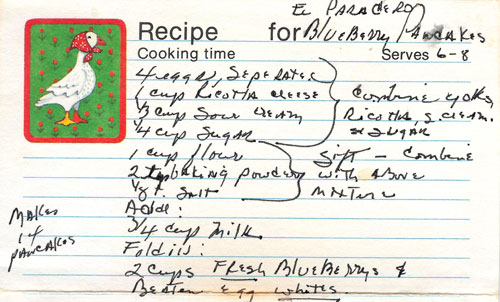 El Paradero
Recipe for Blueberry Pancakes
Cooking time Serves 6-8
4 eggs, seperated
1 cup Ricotta cheese
1/3 cup sour cream
1/4 cup sugar
Combine yolks,
Ricotta, s. cream.
& sugar
1 cup flour
2 t. baking powder
1/8 t. salt
Sift - combine
with above
mixture
Add:
3/4 cup milk
Fold in:
2 cups fresh Blueberrys &
Beaten egg whites.
Makes
14
pancakes